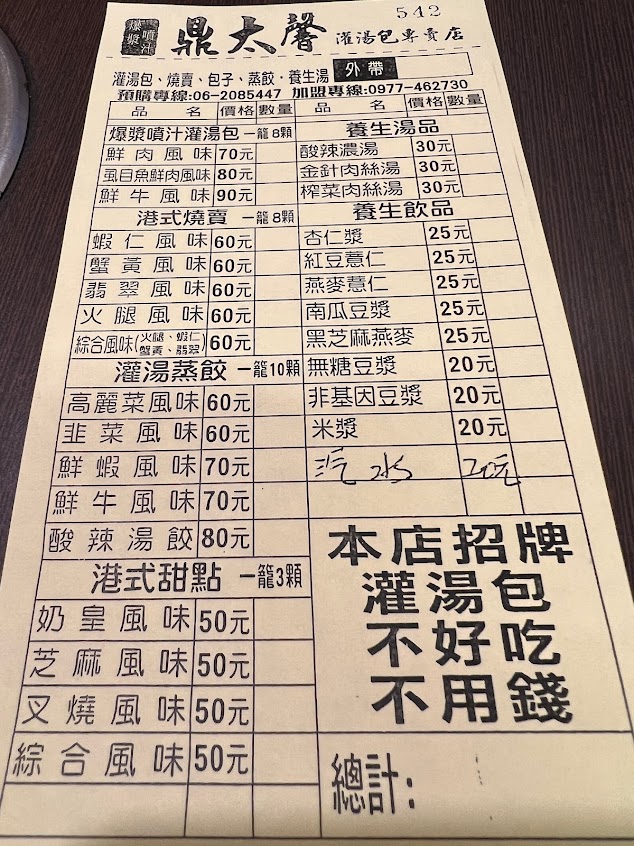 542
爆漿 噴汁 鼎太馨 灌湯包專賣店
灌湯包、燒賣、包子、蒸餃,養生湯 外帶
預購專線:06-2085447 加盟專線:0977-462730
品名 價格 數量 品名 價格 數量
爆漿噴汁灌湯包 一籠8顆
鮮肉風味 70元
虱目魚鮮肉風味 80元
鮮牛風味 90元
港式燒賣 一籠8顆
蝦仁風味 60元
蟹黃風味 60元
翡翠風味 60元
火腿風味 60元
綜合風味(火腿、蝦仁 蟹黃、翡翠) 60元
灌湯蒸餃 一籠10顆
高麗菜風味 60元
韭菜風味 60元
鮮蝦風味 70元
鮮牛風味 70元
酸辣湯餃 80元
港式甜點 一籠3顆
奶皇風味 50元
芝麻風味 50元
叉燒風味 50元
綜合風味 50元
養生湯品
酸辣濃湯 30元
金針肉絲湯 30元
榨菜肉絲湯 30元
養生飲品
杏仁漿 25元
紅豆薏仁 25元
燕麥薏仁 25元
南瓜豆漿 25元
黑芝麻燕麥 25元
無糖豆漿 20元
非基因豆漿 20元
米漿 20元
汽水
本店招牌
灌湯包
不好吃
不用錢
總計: